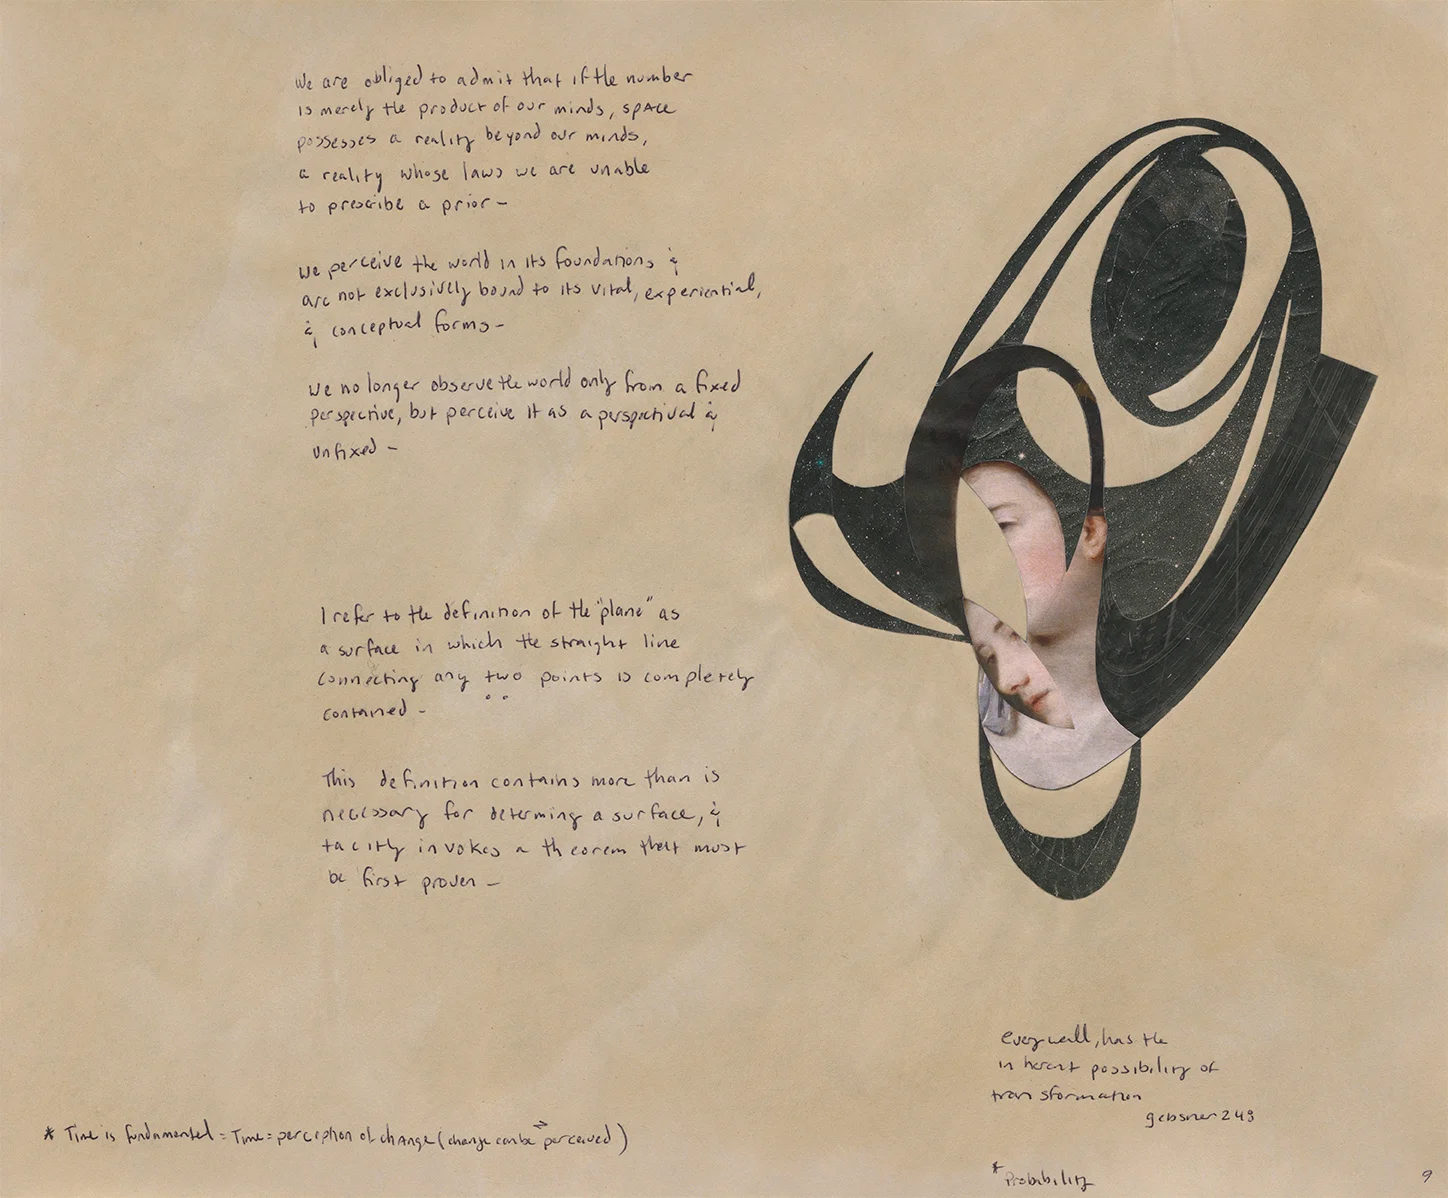 We are obliged to admit that if the number
is merely the product of our minds, space
possesses a reality beyond our minds,
a reality whose laws we are unable
to prescribe a prior -
We perceive the world in its foundations &
are not exclusively bound to its vital, experiential,
& conceptual forms -
We no longer observe the world only from a fixed
perspective, but perceive it as a perspectival &
unfixed -
I refer to the definition of the "plane" as
a surface in which the straight line
connecting any two points is completely
contained -
This definition contains more than is
necessary for determing a surface, &
tacitly invokes a theorem that must
be first proven -
every wall, has the
inherent possibility of
transformation
gebsner 249
* Time is fundamental = Time = perception of change (change can be perceived)
* Probibility
9